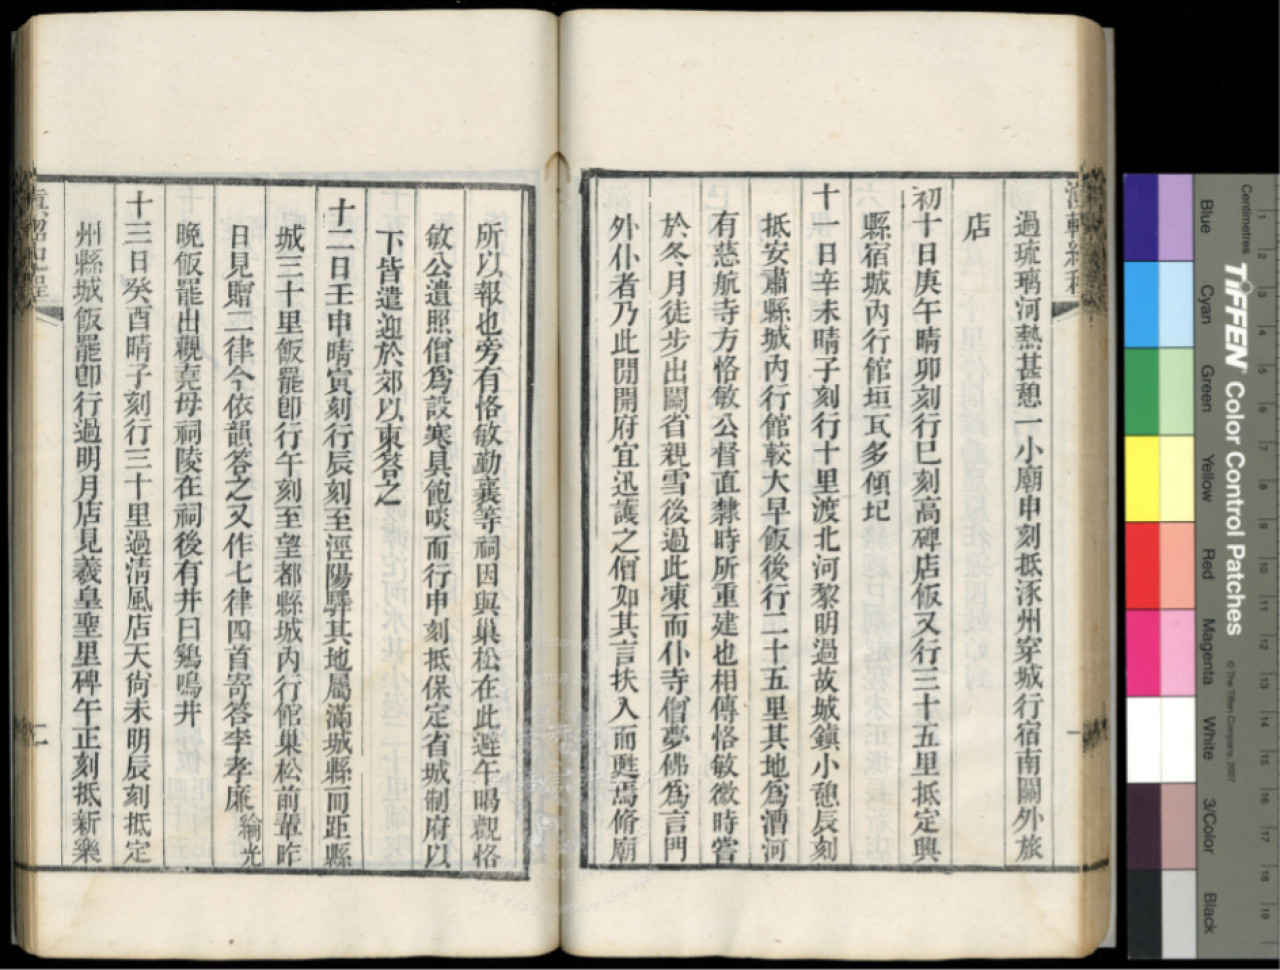 過琉璃河熱甚憩一小廟申刻抵涿州穿城行宿南關外旅
店
初十日庚午晴卯刻行巳刻高碑店飯又行三十五里抵定興
縣宿城內行館垣瓦多傾圮
十一日辛未晴子刻行十里渡北河黎明過故城鎮小憩辰刻
抵安肅縣城內行館較大早飯後行二十五里其地為漕河
有慈航寺方恪敏公督直隸時所重建也相傳恪敏微時嘗
於冬月徒步出關省親雪後過此凍而仆寺僧夢佛為言門
外仆者乃此間開府宜迅護之僧如其言扶入而甦焉脩廟
所以報也旁有恪敏勤襄等祠因與巢松在此避午暍觀恪
敏公遺照僧為設寒具飽啖而行申刻抵保定省城制府以
下皆遣迎於郊以柬答之
十二日壬申晴寅刻行辰刻至涇陽驛其地屬滿城縣而距縣
城三十里飯罷卽行午刻至望都縣城內行館巢松前輩昨
日見贈二律今依韻答之又作七律四首寄答李孝廉綸光
晚飯罷出觀堯母祠陵在祠後有井曰鷄鳴井
十三日癸酉晴子刻行三十里過清風店天尙未明辰刻抵定
州縣城飯罷卽行過明月店見羲皇聖里碑午正刻抵新樂
滇軺紀程
二